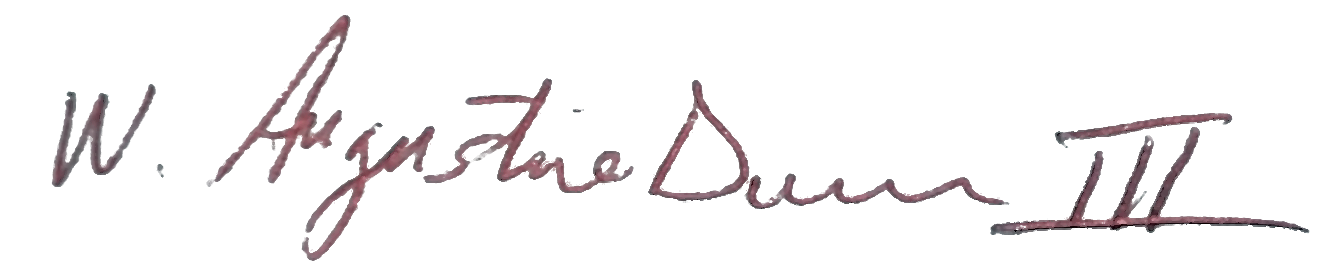 W. Augustine Dunn III